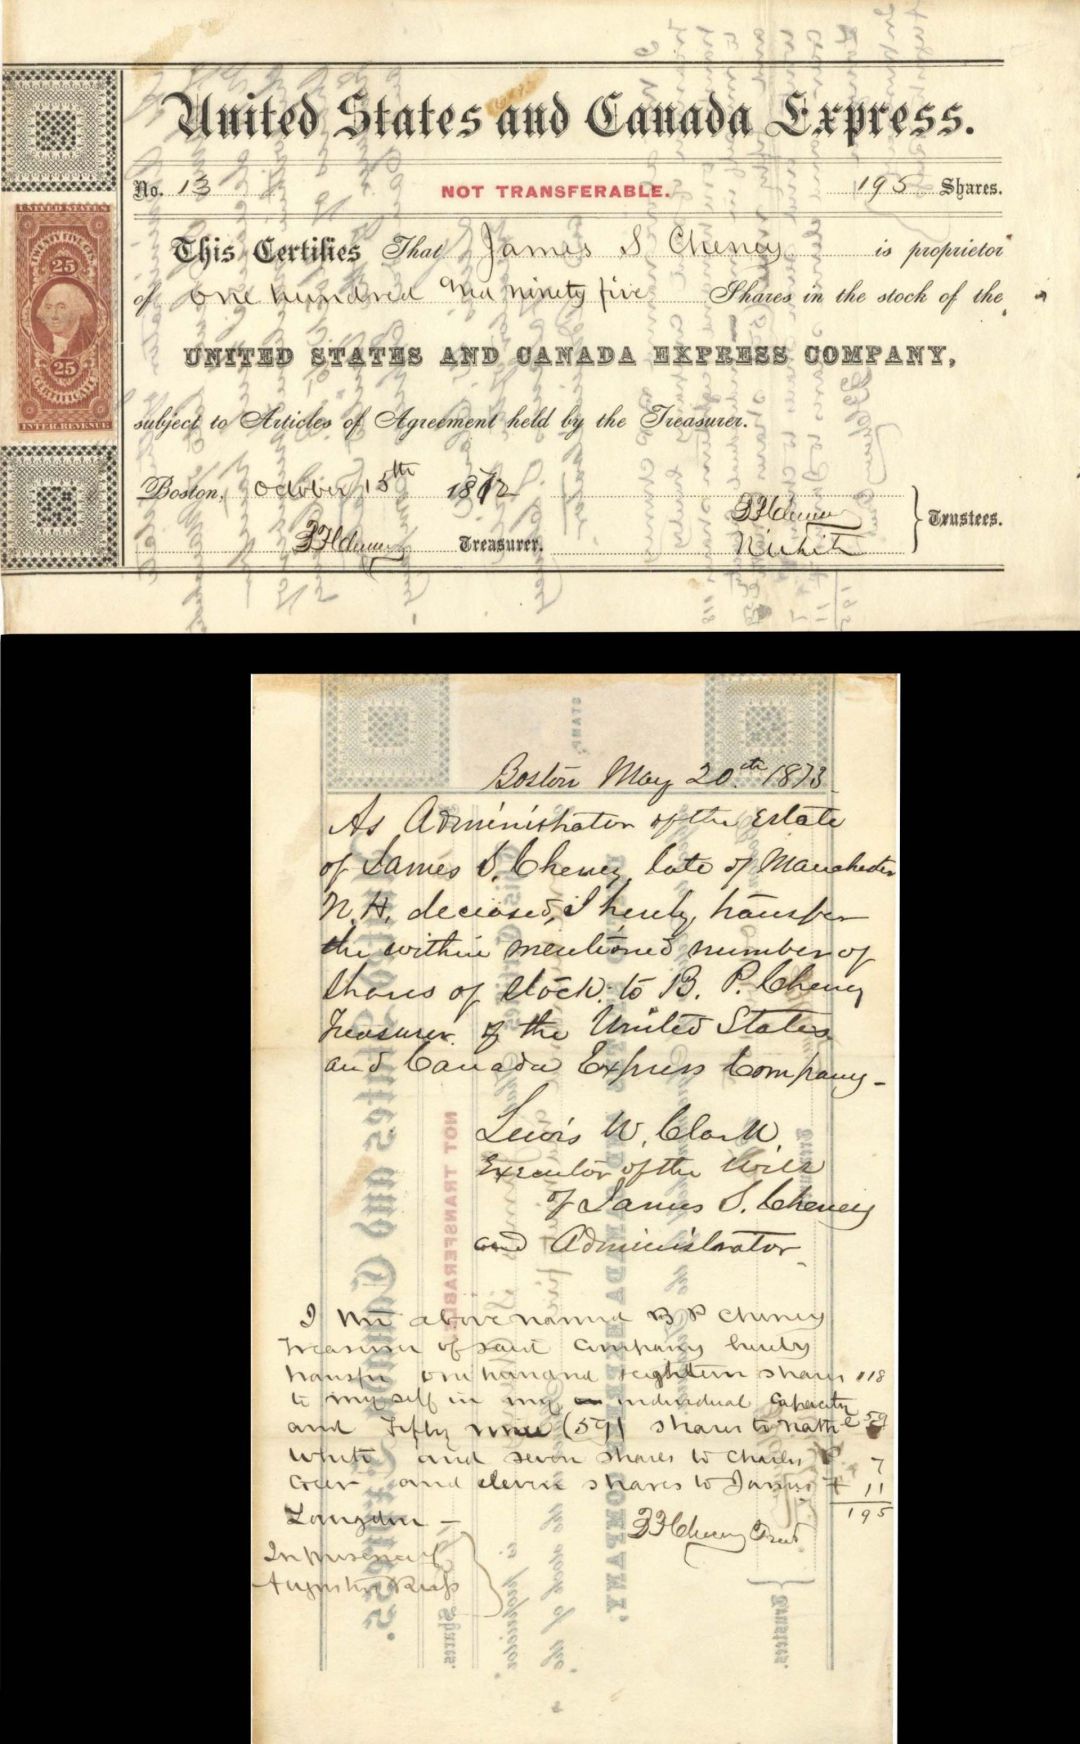 United States and Canada Express.
No. 13 NOT TRANSFERABLE. 195 Shares.
UNITED STATES
TWENTY FIVE CTS.
25
25
CERTIFICATE
INTER. REVENUE
This Certifies That James S. Cheney is proprietor
of One hundred and ninety five Shares in the stock of the
UNITED STATES AND CANADA EXPRESS COMPANY,
subject to Articles of Agreement held by the Treasurer.
Boston, October 15th 1872
Treasurer. Trustees.
N White
STAMP.
Boston May 20th. 1873
As Administrator of the Estate
of James S. Cheney late of Manchester
N.H. deceased, I hereby transfer
the within mentioned number of
shares of stock to B. P. Cheney
Treasurer of the United States
and Canada Express Company -
Lewis W. Clark,
Executor of the Will
of James S. Cheney
and Administrator
I the above named B P Cheney
Treasurer of said Company hereby
transfer one hundred & eighteen shares 118
to myself in my individual capacity
and Fifty nine (59) shares to Nathl 59
White and seven shares to Charles 7
and eleven shares to James 11
Langdon — 195
B P Cheney Treas
In presence of
Augustus Russ